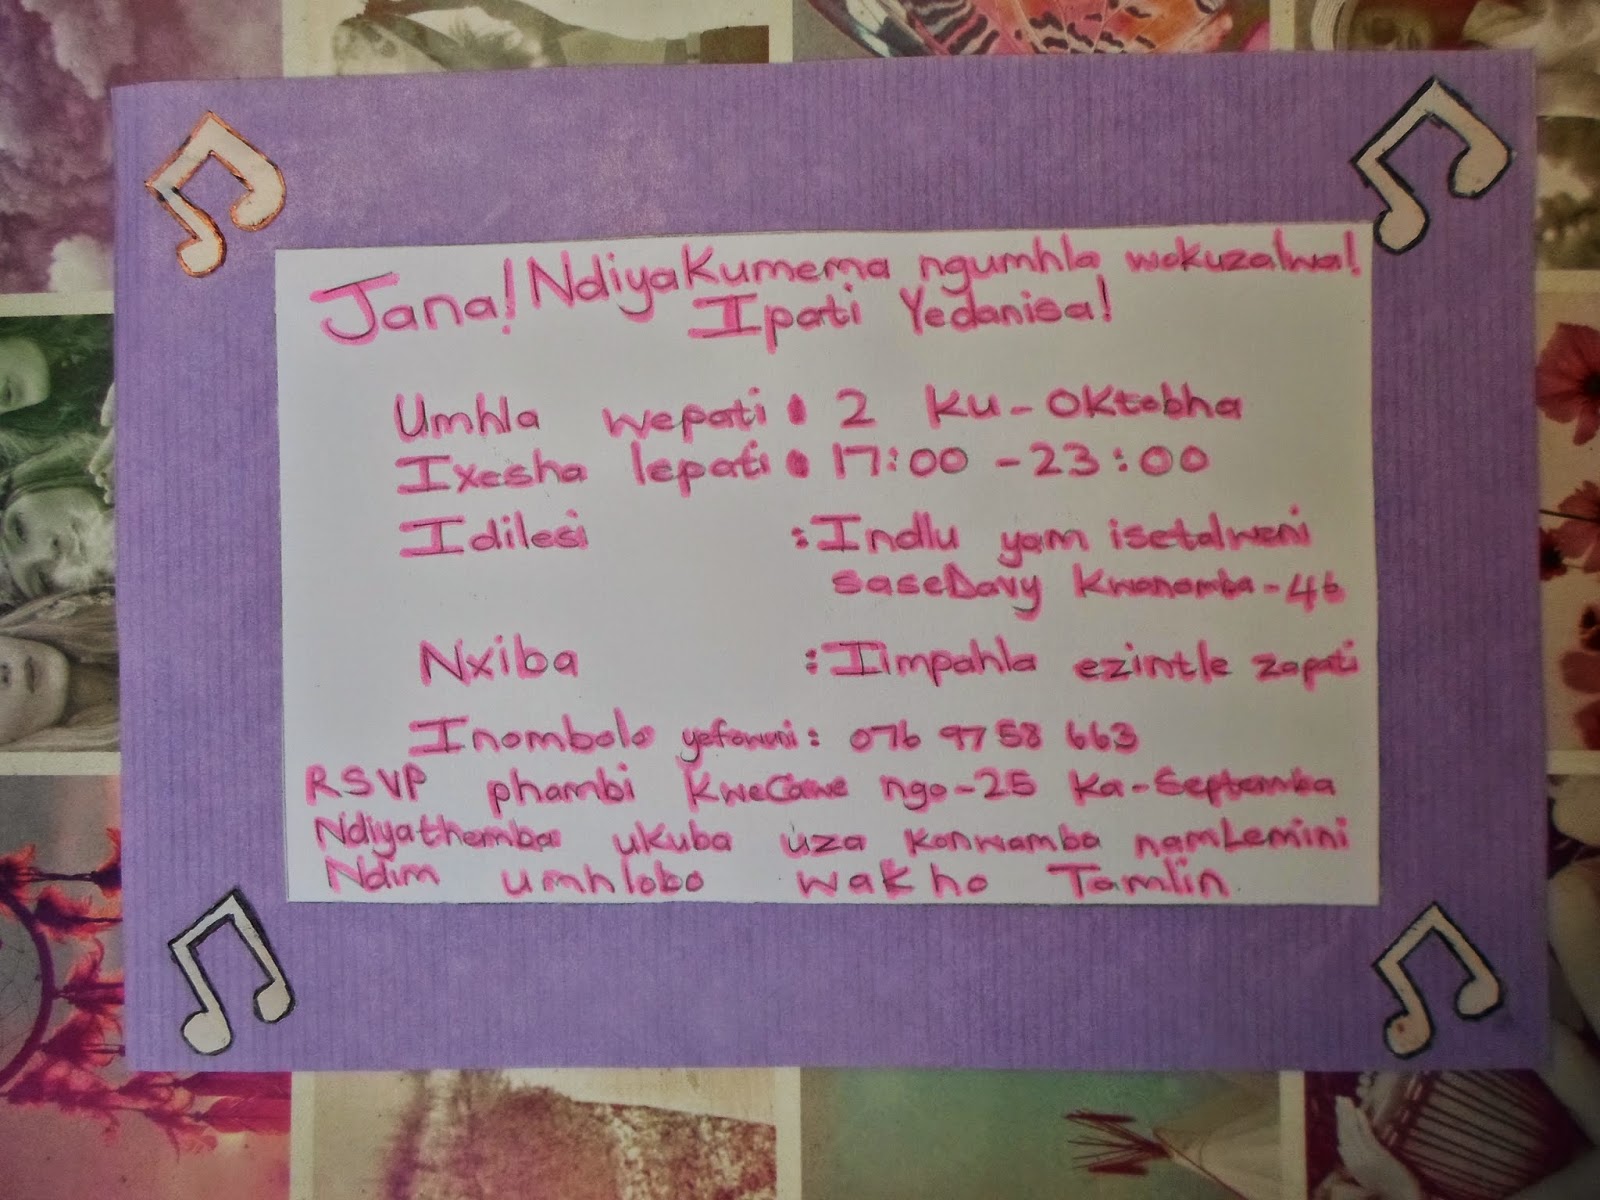 Jana! NdiyaKumema ngumhla wokuzalwa!
Ipati Yedanisa!
Umhla wepati : 2 Ku-Oktobha
Ixesha lepati : 17:00 -23:00
Idilesi : Indlu yam isetalweni
saseDavy Kwanomba-46
Nxiba : Iimpahla ezintle zapati
Inombolo yefowuni : 076 9758 663
RSVP phambi KweCawe ngo-25 Ka-Septemba
Ndiyathemba ukuba uza konwamba namLemini
Ndim umhlobo wakho Tamlin